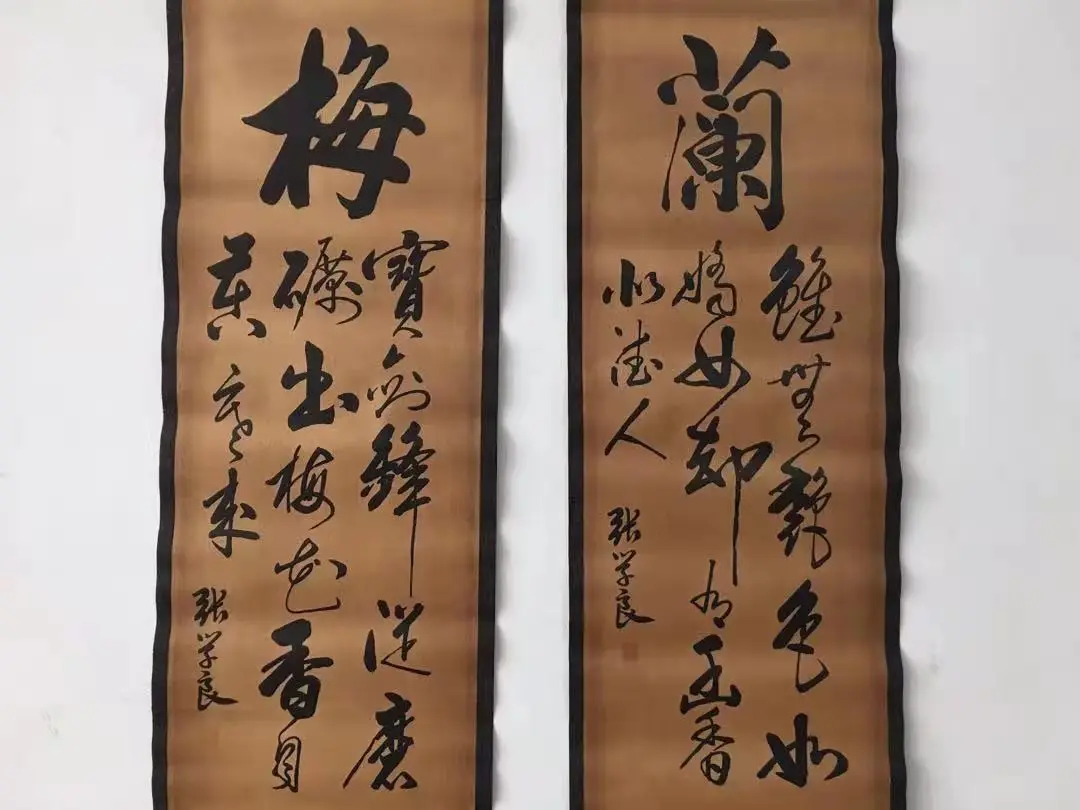 梅
寶劍鋒從磨
礪出梅花香自
苦寒來
张学良
蘭
雖無艷色如
嬌女却有幽香
似德人
张学良